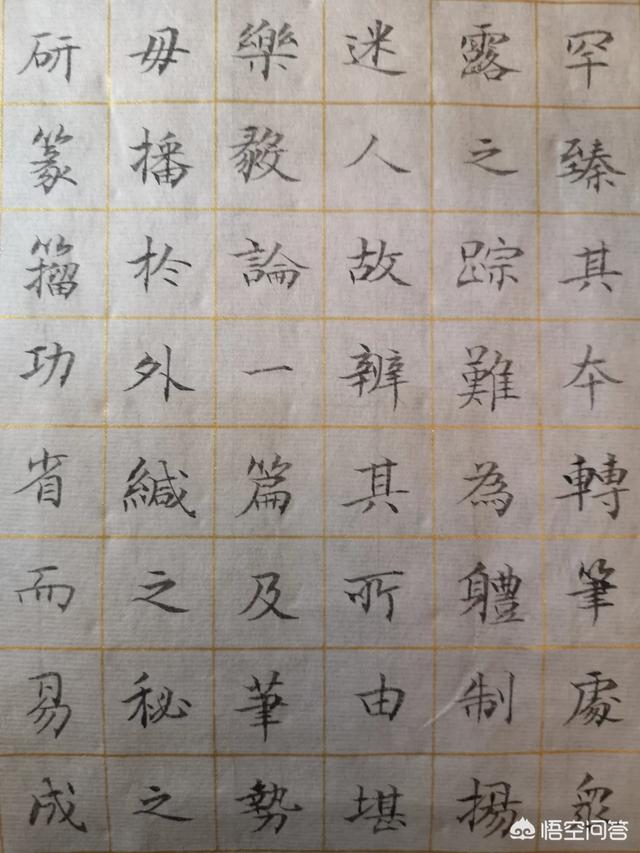 罕臻其本轉筆處眾
露之踪難為軆制揚
迷人故辨其所由堪
樂毅論一篇及筆勢
毋播於外緘之秘之
研篆籀功省而易成
悟空问答